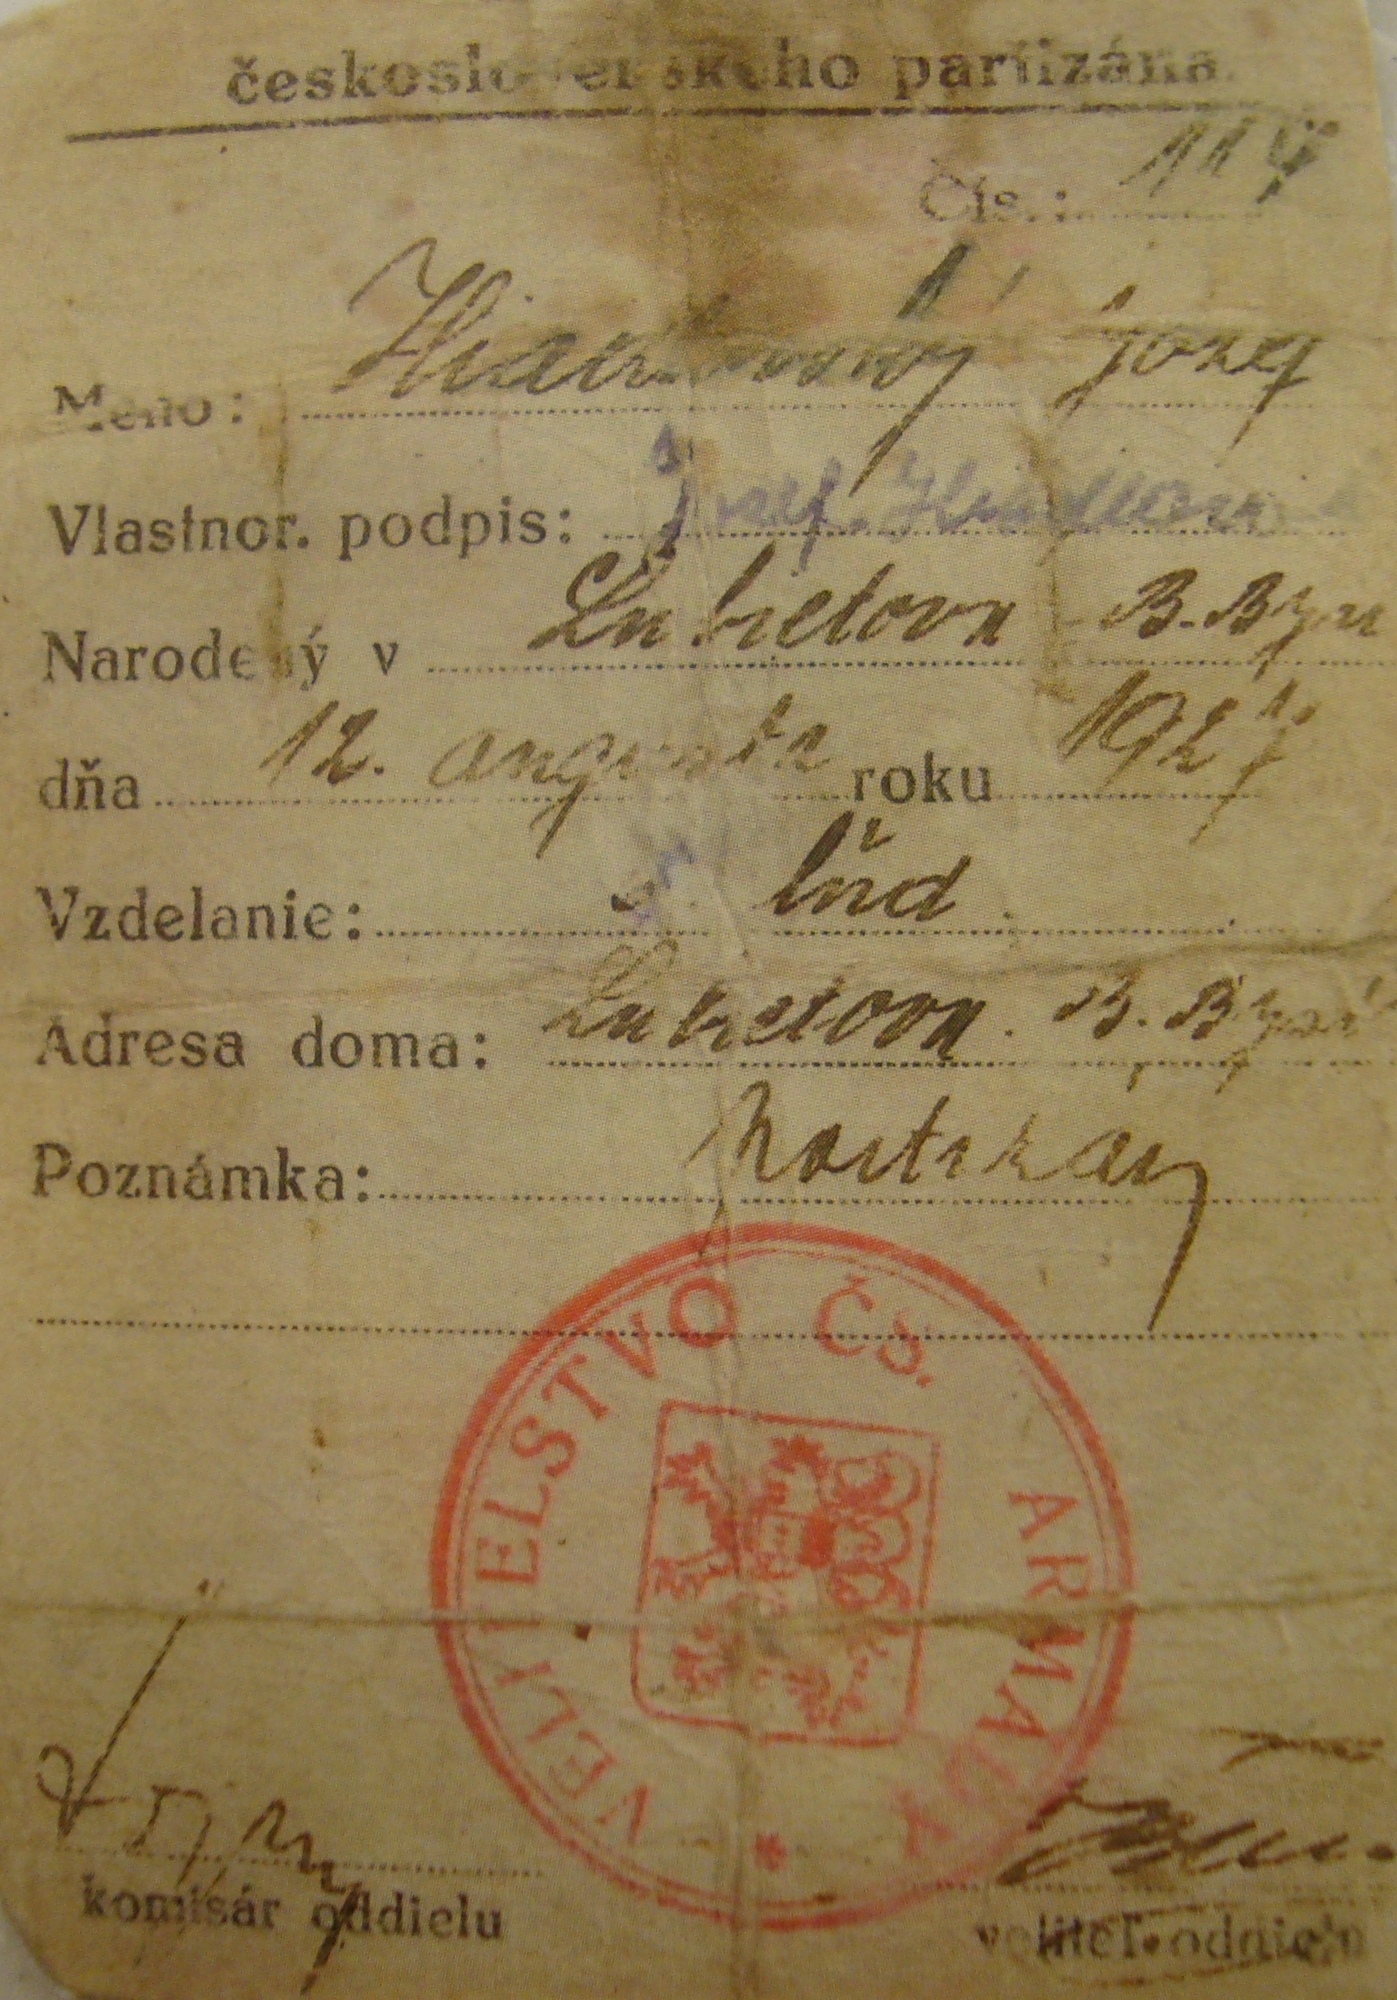 československého partizána.
Čís.:
Meno: Jozef
Vlastnor. podpis: Jozef
Narodený v Lubietova B. Bystr
dňa 12. augusta roku 1927
Vzdelanie: ľud
Adresa doma: Lubietova. B. Bystr
Poznámka:
VELITELSTVO ČS. ARMÁDY *
komisár oddielu
veliteľ oddielu